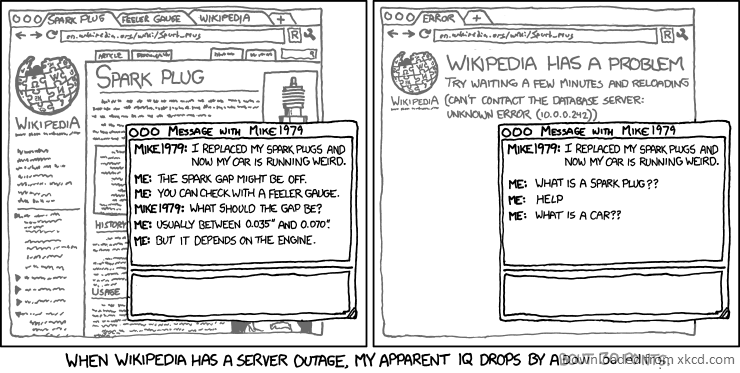 SPARK PLUG
FEELER GAUGE
WIKIPEDIA
+
en.wikipedia.org/wiki/Spark_plug
R
ARTICLE
SPARK PLUG
WIKIPEDIA
HISTORY
USAGE
MESSAGE WITH MIKE1979
MIKE1979: I REPLACED MY SPARK PLUGS AND
NOW MY CAR IS RUNNING WEIRD.
ME: THE SPARK GAP MIGHT BE OFF.
ME: YOU CAN CHECK WITH A FEELER GAUGE.
MIKE1979: WHAT SHOULD THE GAP BE?
ME: USUALLY BETWEEN 0.035" AND 0.070".
ME: BUT IT DEPENDS ON THE ENGINE.
ERROR
+
en.wikipedia.org/wiki/Spark_plug
R
WIKIPEDIA
WIKIPEDIA HAS A PROBLEM
TRY WAITING A FEW MINUTES AND RELOADING
(CAN'T CONTACT THE DATABASE SERVER:
UNKNOWN ERROR (10.0.0.242))
MESSAGE WITH MIKE1979
MIKE1979: I REPLACED MY SPARK PLUGS AND
NOW MY CAR IS RUNNING WEIRD.
ME: WHAT IS A SPARK PLUG??
ME: HELP
ME: WHAT IS A CAR??
WHEN WIKIPEDIA HAS A SERVER OUTAGE, MY APPARENT IQ DROPS BY ABOUT 30 POINTS.
Downloaded from xkcd.com